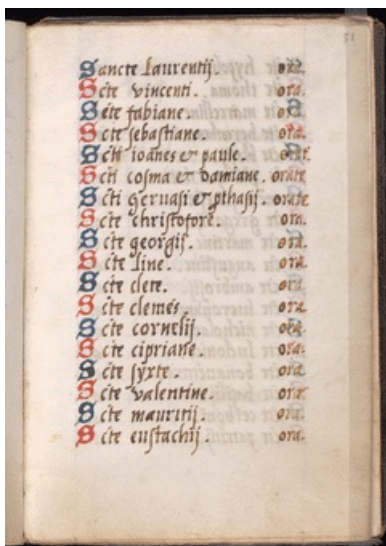 51
Sancte Laurentij. ora.
Scte vincenti. ora.
Scte fabiane. ora.
Scte sebastiane. ora.
Scti ioanes & paule. orat.
Scti cosma & damiane. orate
Scti geruasi & pthasij. orate
Scte christofore. ora.
Scte georgij. ora.
Scte line. ora.
Scte clete. ora.
Scte clemēs. ora.
Scte cornelij. ora.
Scte cipriane. ora.
Scte syxte. ora.
Scte valentine. ora.
Scte mauritij. ora.
Scte eustachij. ora.